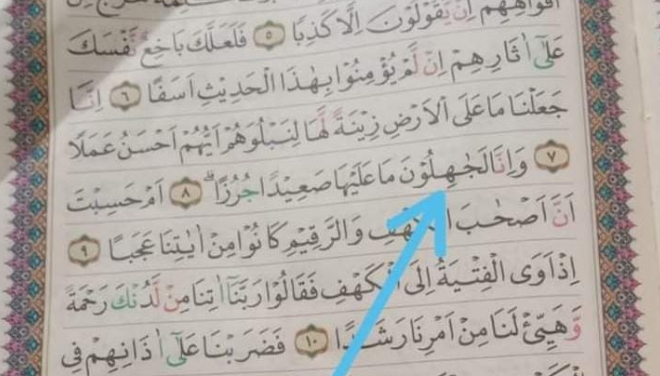 اَفْوَاهِهِمْ اِنْ يَّقُوْلُوْنَ اِلَّا كَذِبًا ٥ فَلَعَلَّكَ بَاخِعٌ نَّفْسَكَ
عَلٰٓى اٰثَارِهِمْ اِنْ لَّمْ يُؤْمِنُوْا بِهٰذَا الْحَدِيْثِ اَسَفًا ٦ اِنَّا
جَعَلْنَا مَا عَلَى الْاَرْضِ زِيْنَةً لَّهَا لِنَبْلُوَهُمْ اَيُّهُمْ اَحْسَنُ عَمَلًا
٧ وَاِنَّا لَجٰهِلُوْنَ مَا عَلَيْهَا صَعِيْدًا جُرُزًاۗ ٨ اَمْ حَسِبْتَ
اَنَّ اَصْحٰبَ الْكَهْفِ وَالرَّقِيْمِ كَانُوْا مِنْ اٰيٰتِنَا عَجَبًا ٩
اِذْ اَوَى الْفِتْيَةُ اِلَى الْكَهْفِ فَقَالُوْا رَبَّنَآ اٰتِنَا مِنْ لَّدُنْكَ رَحْمَةً
وَّهَيِّئْ لَنَا مِنْ اَمْرِنَا رَشَدًا ١٠ فَضَرَبْنَا عَلٰٓى اٰذَانِهِمْ فِى